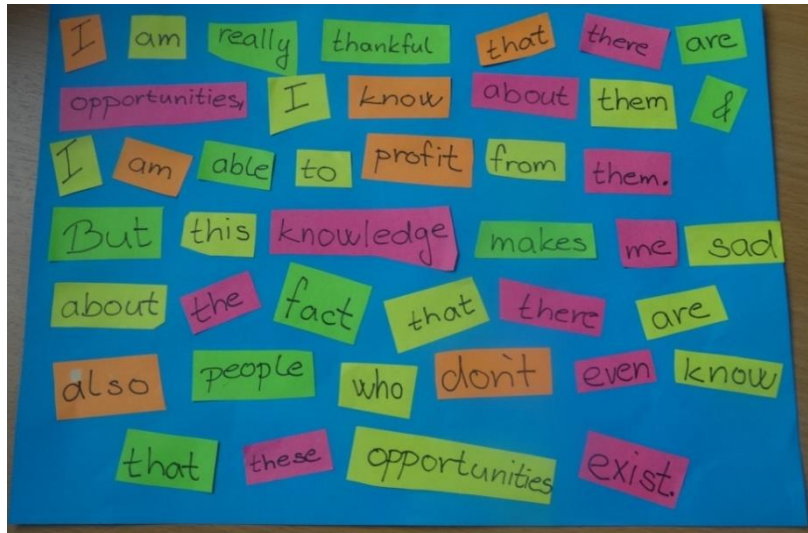 I am really thankful that there are
opportunities, I know about them &
I am able to profit from them.
But this knowledge makes me sad
about the fact that there are
also people who don't even know
that these opportunities exist.